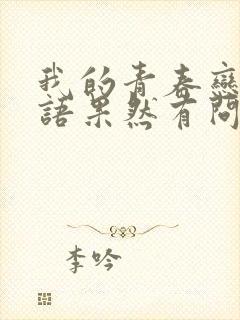 我的青春戀
語果然有問
李吟